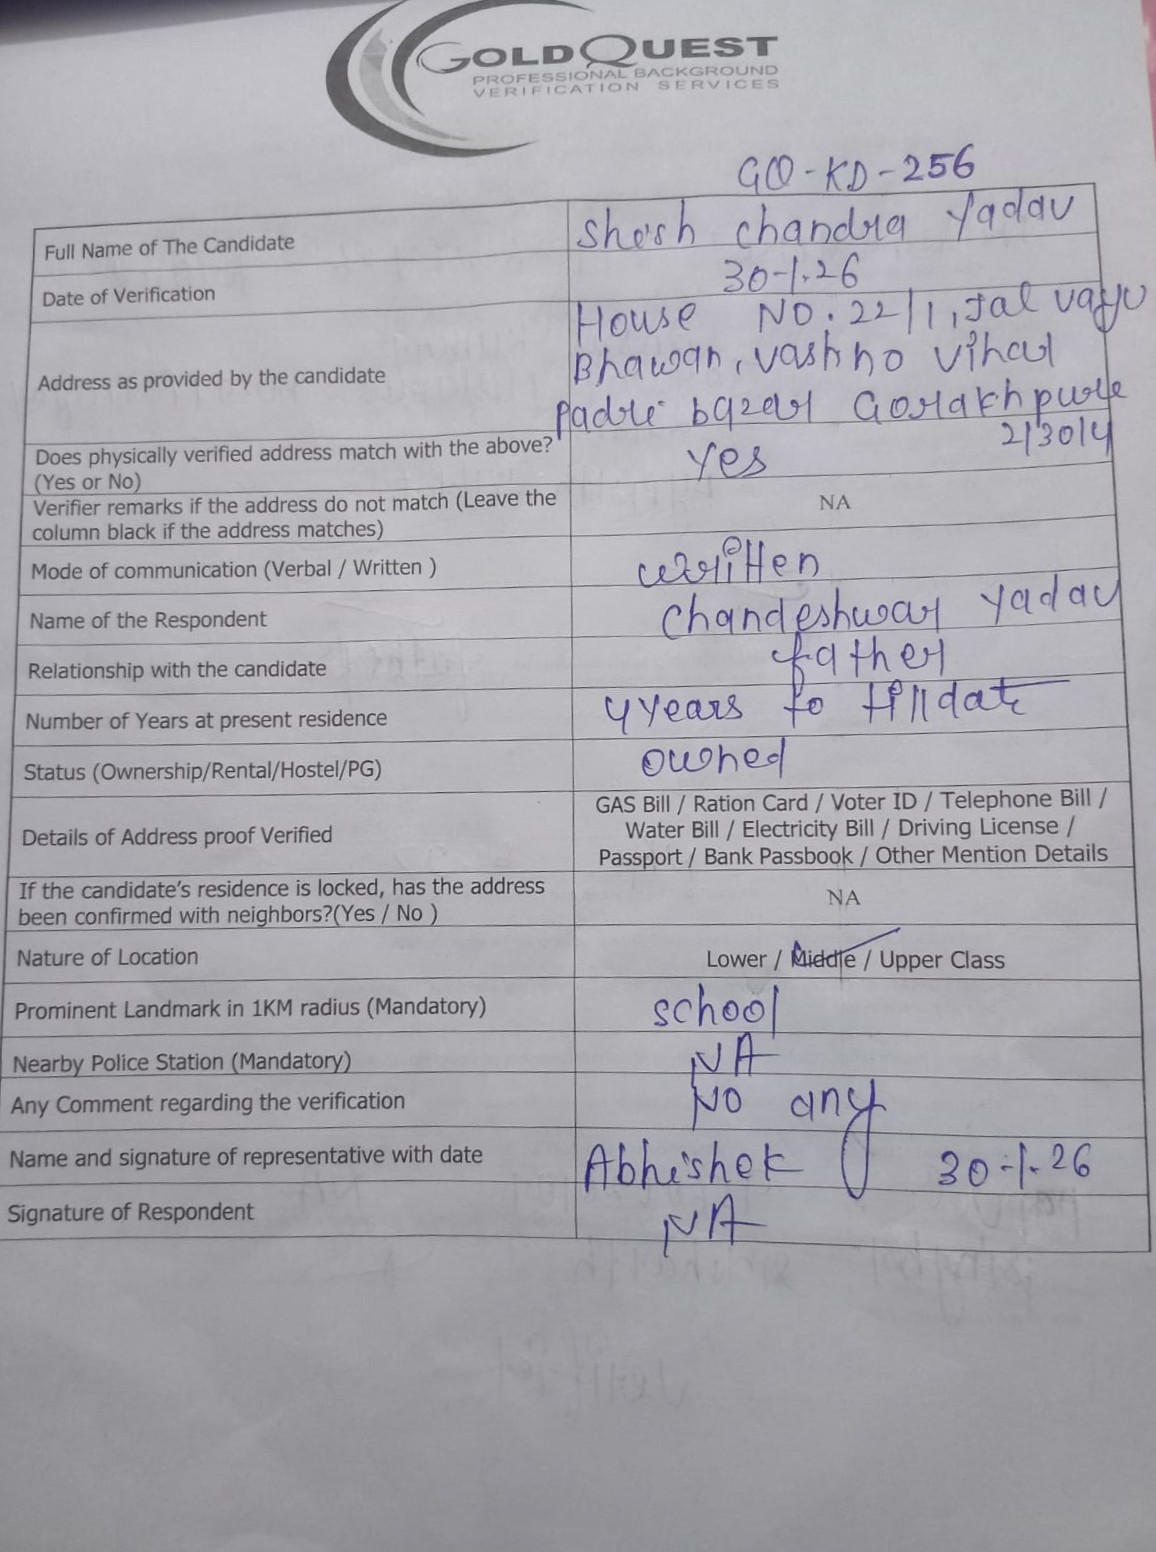 GOLDQUEST
PROFESSIONAL BACKGROUND
VERIFICATION SERVICES
GQ-KD-256
Full Name of The Candidate
Shesh chandra Yadav
Date of Verification
30-1-26
Address as provided by the candidate
House NO. 22/1, Jal vayu
Bhawan, vashno vihar
padri bazar Gorakhpur
273014
Does physically verified address match with the above?
(Yes or No)
Yes
Verifier remarks if the address do not match (Leave the
column black if the address matches)
NA
Mode of communication (Verbal / Written )
written
Name of the Respondent
Chandeshwar Yadav
Relationship with the candidate
father
Number of Years at present residence
4 years to till date
Status (Ownership/Rental/Hostel/PG)
owned
Details of Address proof Verified
GAS Bill / Ration Card / Voter ID / Telephone Bill /
Water Bill / Electricity Bill / Driving License /
Passport / Bank Passbook / Other Mention Details
If the candidate's residence is locked, has the address
been confirmed with neighbors?(Yes / No )
NA
Nature of Location
Lower / Middle / Upper Class
Prominent Landmark in 1KM radius (Mandatory)
school
Nearby Police Station (Mandatory)
NA
Any Comment regarding the verification
NO any
Name and signature of representative with date
Abhishek 30-1-26
Signature of Respondent
NA